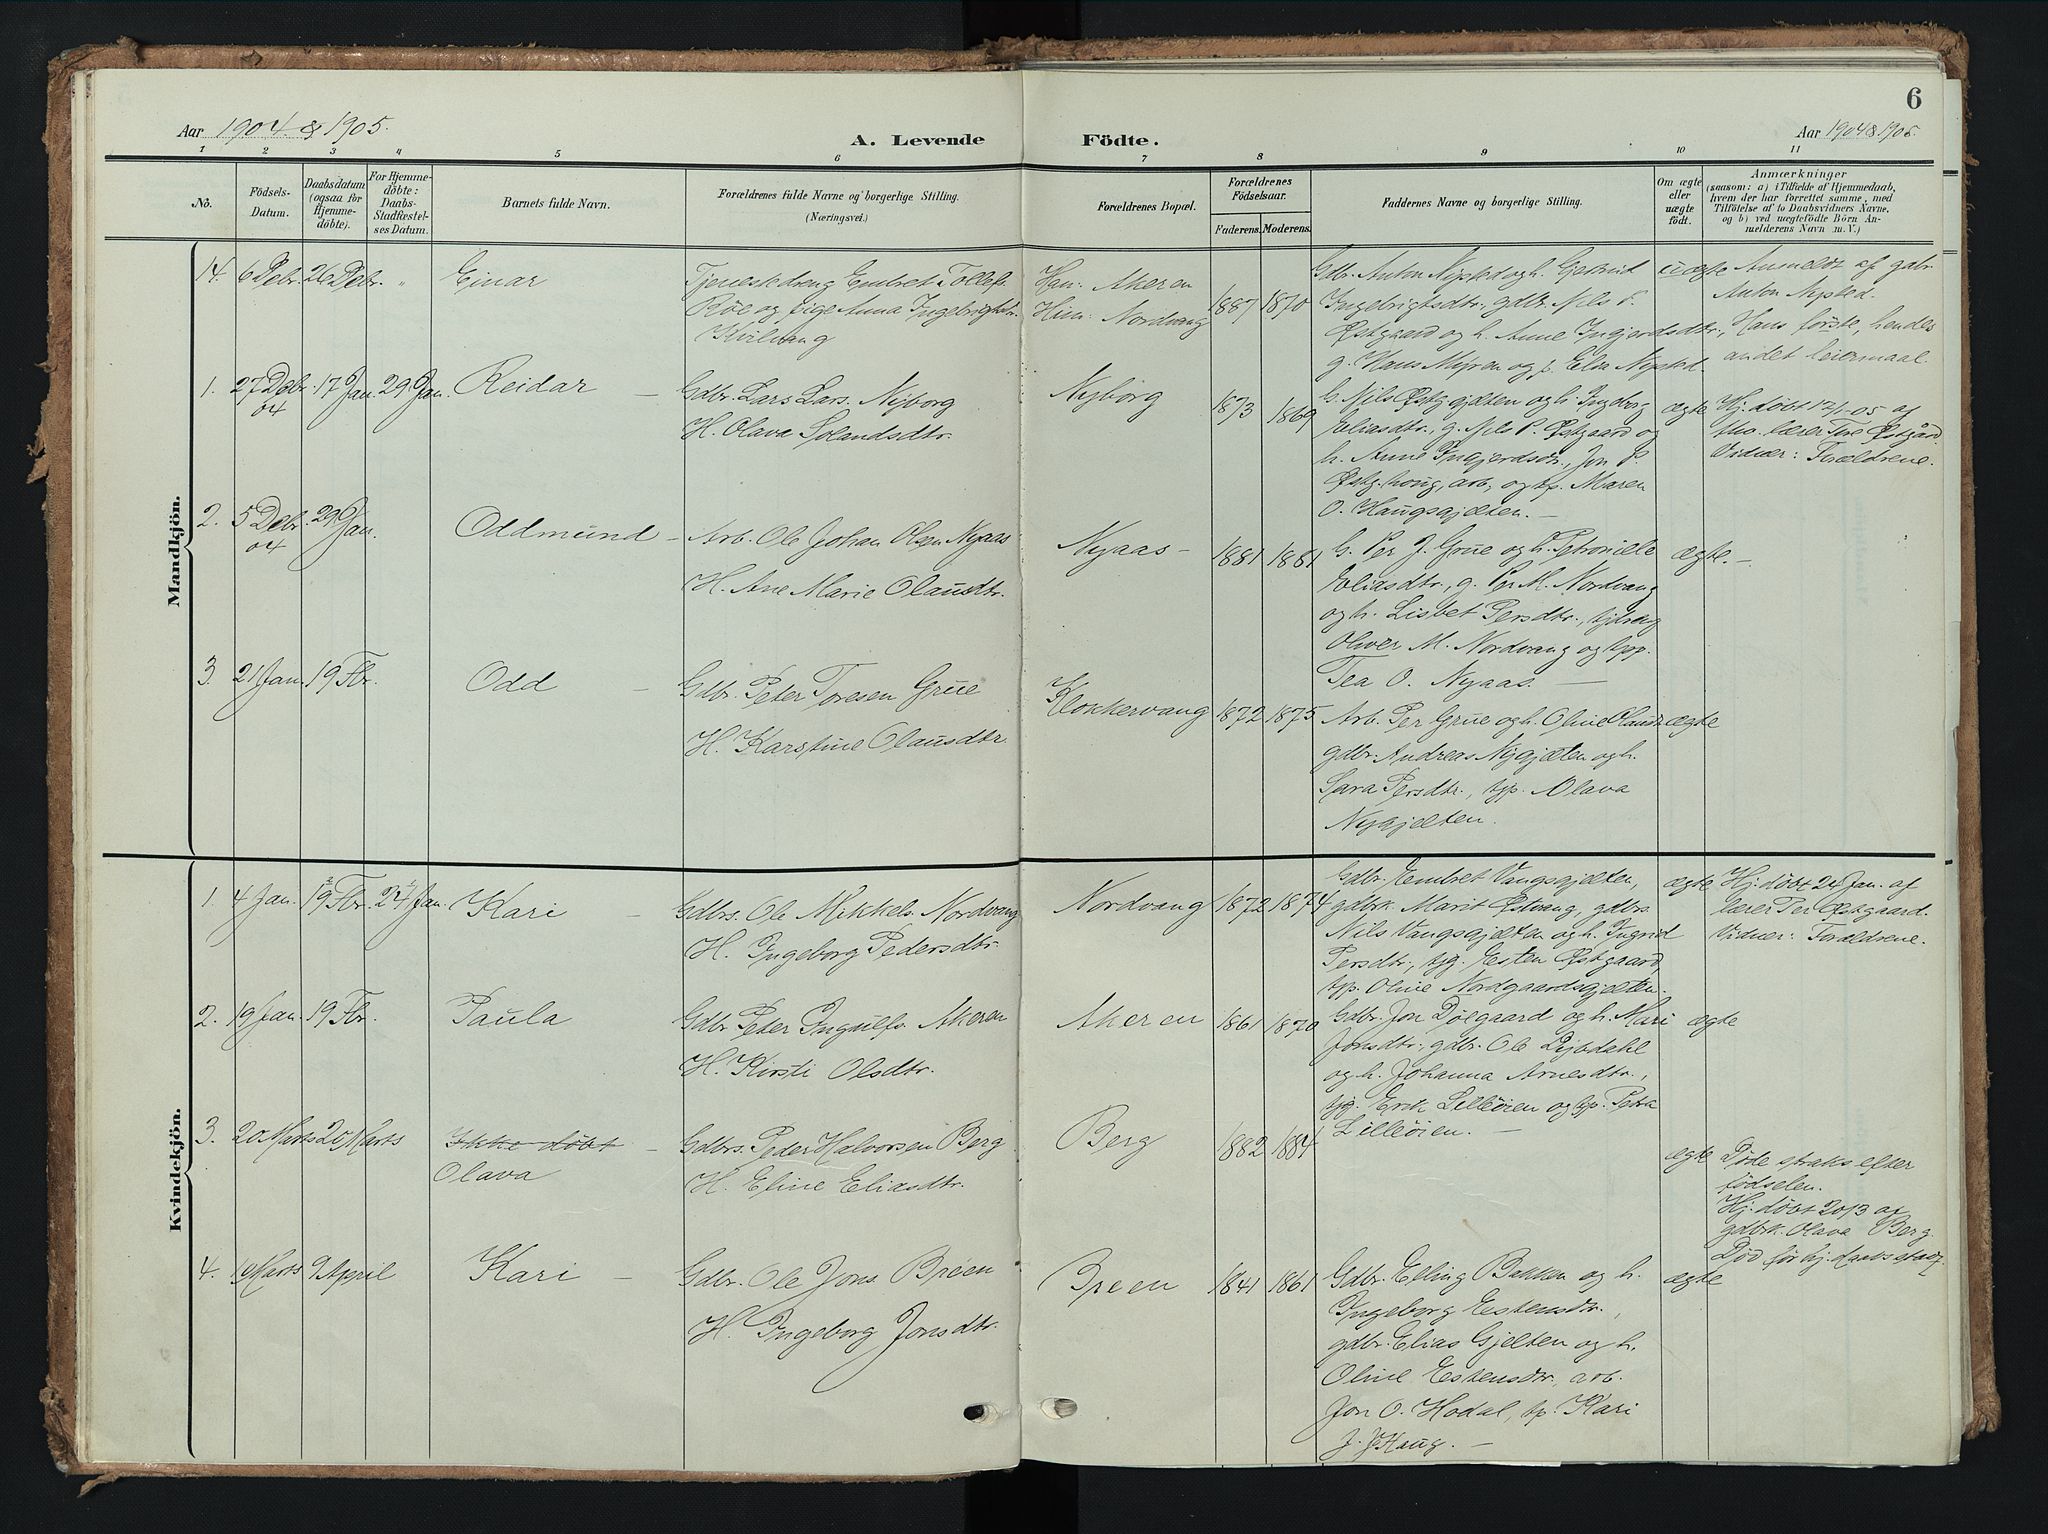 6
Aar 1904 & 1905.
A. Levende
Födte.
Aar 1904 & 1905.
1 2 3 4 5 6 7 8 9 10 11
No.
Födsels-
Datum.
Daabsdatum
(ogsaa for
Hjemme-
döbte).
For Hjemme-
döbte:
Daabs-
Stadfæstel-
ses Datum.
Barnets fulde Navn.
Forældrenes fulde Navne og borgerlige Stilling.
(Næringsvei.)
Forældrenes Bopæl.
Forældrenes
Födselsaar.
Faderens.
Moderens.
Faddernes Navne og borgerlige Stilling.
Om ægte
eller
uægte
födt.
Anmærkninger
(saasom: a) i Tilfælde af Hjemmedaab,
hvem der har forrettet samme, med
Tilföielse af to Daabsvidners Navne,
og b) ved uægtefödte Börn An-
melderens Navn m. V.)
Mandkjön.
14. 6 Debr. 26 Debr. " Einar
Tjenestedreng Embret Tollefs.
Røe og pige Anna Ingebrigtsdtr.
Kvilvang
Han: Akeren
Hun: Nordvang
1887 1870
Gdbr. Anton Nysted og h. Gjertrud
Ingebrigtsdtr., gdbr. Nils P.
Østgaard og h. Anne Ingjerdsdtr.,
g. Hans Myren og p. Elen Nysted.
uægte
Anmeldt af gdbr.
Anton Nysted.
Hans første, hendes
andet leiermaal.
1. 27 Debr. 04 17 Jan. 29 Jan. Reidar –
Gdbr. Lars Lars. Nyborg
H. Olava Solandsdtr.
Nyborg
1873 1869
G. Nils Østgjelten og h. Ingeborg
Eliasdtr., g. Nils P. Østgaard og
h. Anne Ingjerdsdtr., Jon P.
Østg.houg, arb., og tp. Maren
O. Haugsgjelten. –
ægte
Hj. døbt 12/1-05 af
lærer Tore Østgård
Vidner: Forældrene.
2. 5 Debr. 04 29 Jan. Oddmund –
Arb. Ole Johan Olsen Nyaas
H. Ane Marie Olausdtr.
Nyaas –
1881 1881
G. Per J. Grue og h. Petronelle
Eliasdtr., g. Per M. Nordvang
og h. Lisbet Persdtr., tjdreng
Oliver M. Nordvang og tjp.
Tea O. Nyaas. –
ægte. –
3. 21 Jan. 19 Fbr. Odd –
Gdbr. Peter Toresen Grue
H. Karstine Olausdtr.
Klokkervang
1872 1875
Arb. Per Grue og h. Oline Olausdtr.
gdbr. Andreas Nygjelten og h.
Sara Persdtr., tjp. Olava
Nygjelten.
ægte
Kvindekjön.
1. 4 Jan. 19 Fbr. 24 Jan. Kari –
Gdbrs. Ole Mikkels. Nordvang
H. Ingeborg Pedersdtr.
Nordvang
1872 1874
Gdbr. Embret Vangsgjelten,
gdbrk. Marit Østvang, gdbrs.
Nils Vangsgjelten og h. Ingrid
Persdtr., tjg. Esten Østgaard,
tjp. Oline Nordgaardsgjelten.
ægte
Hj. døbt 24 Jan. af
lærer Per Østgaard.
Vidner: Forældrene.
2. 19 Jan. 19 Fbr. Paula
Gdbr. Peter Ingulfs. Akeren
H. Kirsti Olsdtr.
Akeren
1861 1870
Gdbr. Jon Dølgaard og h. Mari
Jonsdtr., gdbr. Ole Dybdahl
og h. Johanna Arnesdtr.,
tjg. Erik Lilleøien og tjp. Petra
Lilleøien. –
ægte
3. 20 Marts 20 Marts Ikke døbt –
Olava
Gdbrs. Peder Halvorsen Berg
H. Eline Eliasdtr.
Berg
1882 1884
ægte
Døde straks efter
fødselen.
Hj. døbt 20/3 af
gdbrk. Olava Berg.
Død før hj.daabs stadf.
4. Marts 9 April Kari –
Gdbr. Ole Jons. Brøen
H. Ingeborg Jonsdtr.
Brøen
1841 1861
Gdbr. Elling Bakken og h.
Ingeborg Estensdtr.,
gdbr. Elias Gjelten og h.
Oline Estensdtr., arb.
Jon O. Hodal, tp. Kari
J. Haug. –
ægte